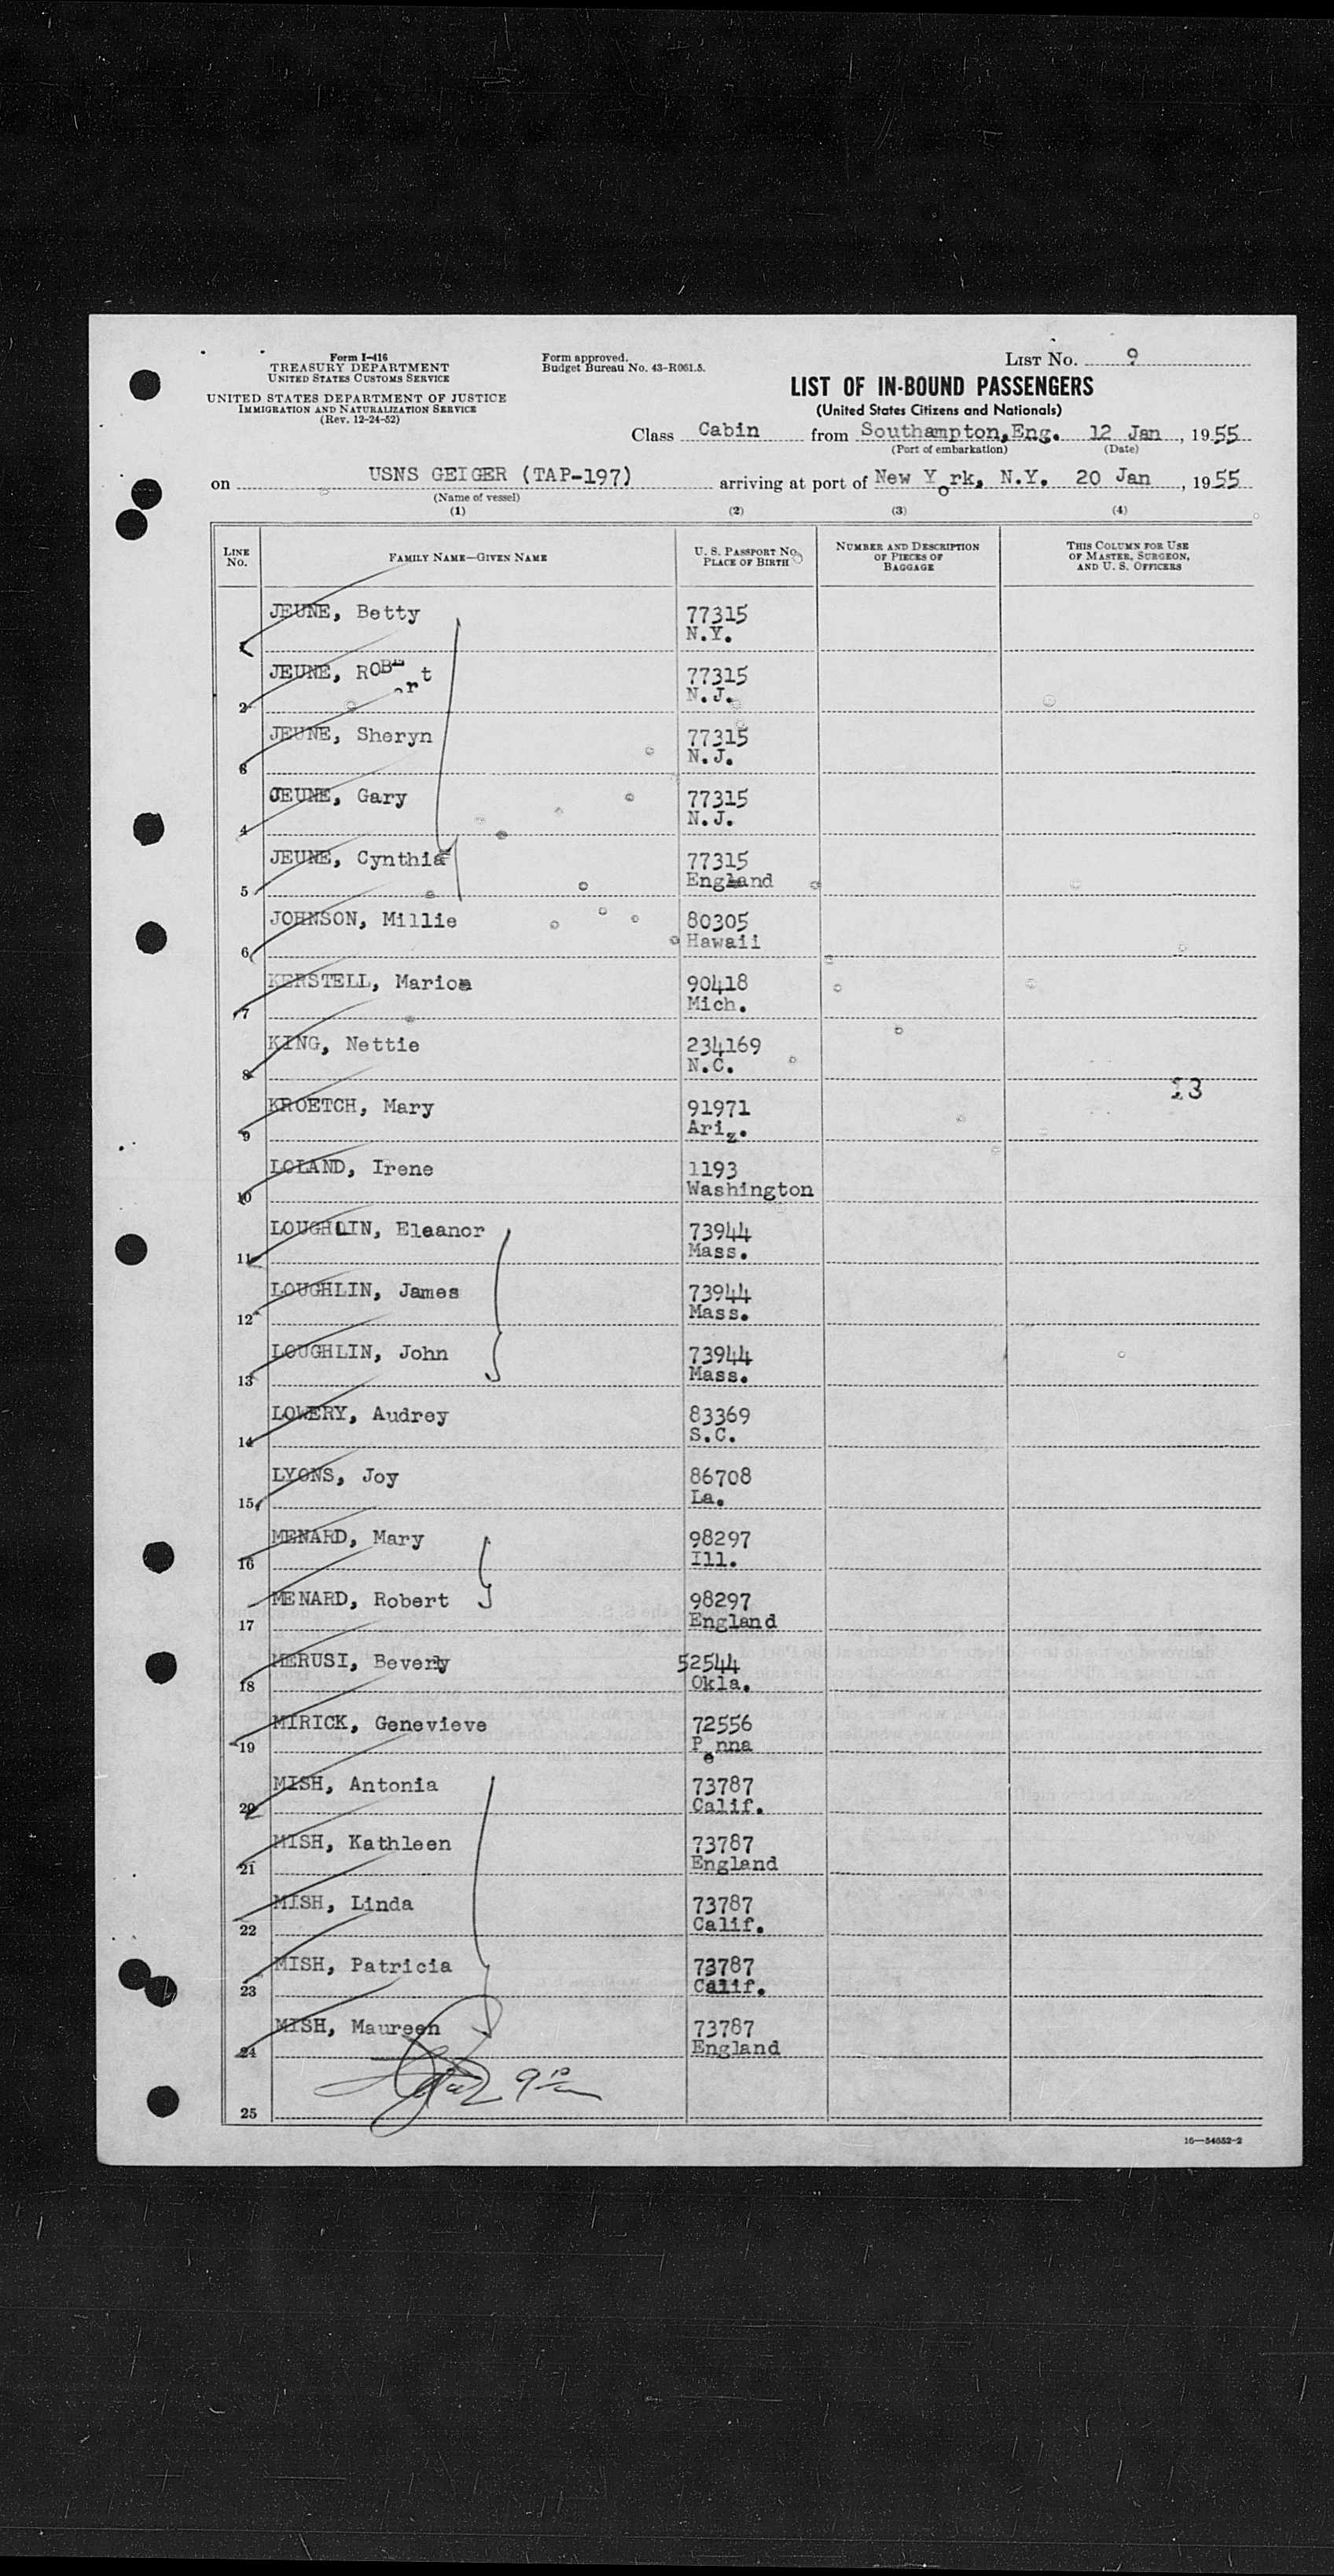 Form I-416
TREASURY DEPARTMENT
UNITED STATES CUSTOMS SERVICE
UNITED STATES DEPARTMENT OF JUSTICE
IMMIGRATION AND NATURALIZATION SERVICE
(Rev. 12-24-52)
Form approved.
Budget Bureau No. 43-R061.5.
LIST No. 9
LIST OF IN-BOUND PASSENGERS
(United States Citizens and Nationals)
Class Cabin from Southampton, Eng. 12 Jan, 1955
(Port of embarkation) (Date)
on USNS GEIGER (TAP-197) arriving at port of New York, N.Y. 20 Jan, 1955
(Name of vessel)
(1) (2) (3) (4)
LINE No. FAMILY NAME—GIVEN NAME U. S. PASSPORT No. PLACE OF BIRTH NUMBER AND DESCRIPTION OF PIECES OF BAGGAGE THIS COLUMN FOR USE OF MASTER, SURGEON, AND U. S. OFFICERS
JEUNE, Betty 77315
1 N.Y.
JEUNE, ROBert 77315
2 N.J.
JEUNE, Sheryn 77315
3 N.J.
JEUNE, Gary 77315
4 N.J.
JEUNE, Cynthia 77315
5 England
JOHNSON, Millie 80305
6 Hawaii
KERSTELL, Marion 90418
7 Mich.
KING, Nettie 234169
8 N.C.
13
KROETCH, Mary 91971
9 Ariz.
LOLAND, Irene 1193
10 Washington
LOUGHLIN, Eleanor 73944
11 Mass.
LOUGHLIN, James 73944
12 Mass.
LOUGHLIN, John 73944
13 Mass.
LOWERY, Audrey 83369
14 S.C.
LYONS, Joy 86708
15 La.
MENARD, Mary 98297
16 Ill.
MENARD, Robert 98297
17 England
MERUSI, Beverly 52544
18 Okla.
MIRICK, Genevieve 72556
19 Penna
MISH, Antonia 73787
20 Calif.
MISH, Kathleen 73787
21 England
MISH, Linda 73787
22 Calif.
MISH, Patricia 73787
23 Calif.
MISH, Maureen 73787
24 England
25
16—54652-2